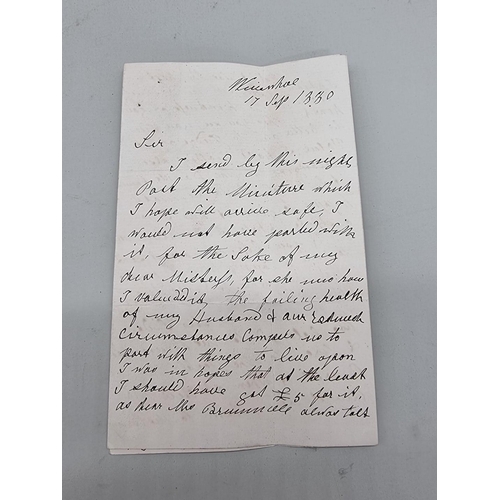 17 Sep 1880
Sir
I send by this night
Post the Miniture which
I hope will arive safe, I
would not have parted with
it, for the Sake of my
dear Mistress, for she
I valued it, the failing health
of my Husband & our reduced
Circumstances Compels us to
part with things to live upon
I was in hopes that at the least
I should have got £5 for it,
as dear Mrs always told